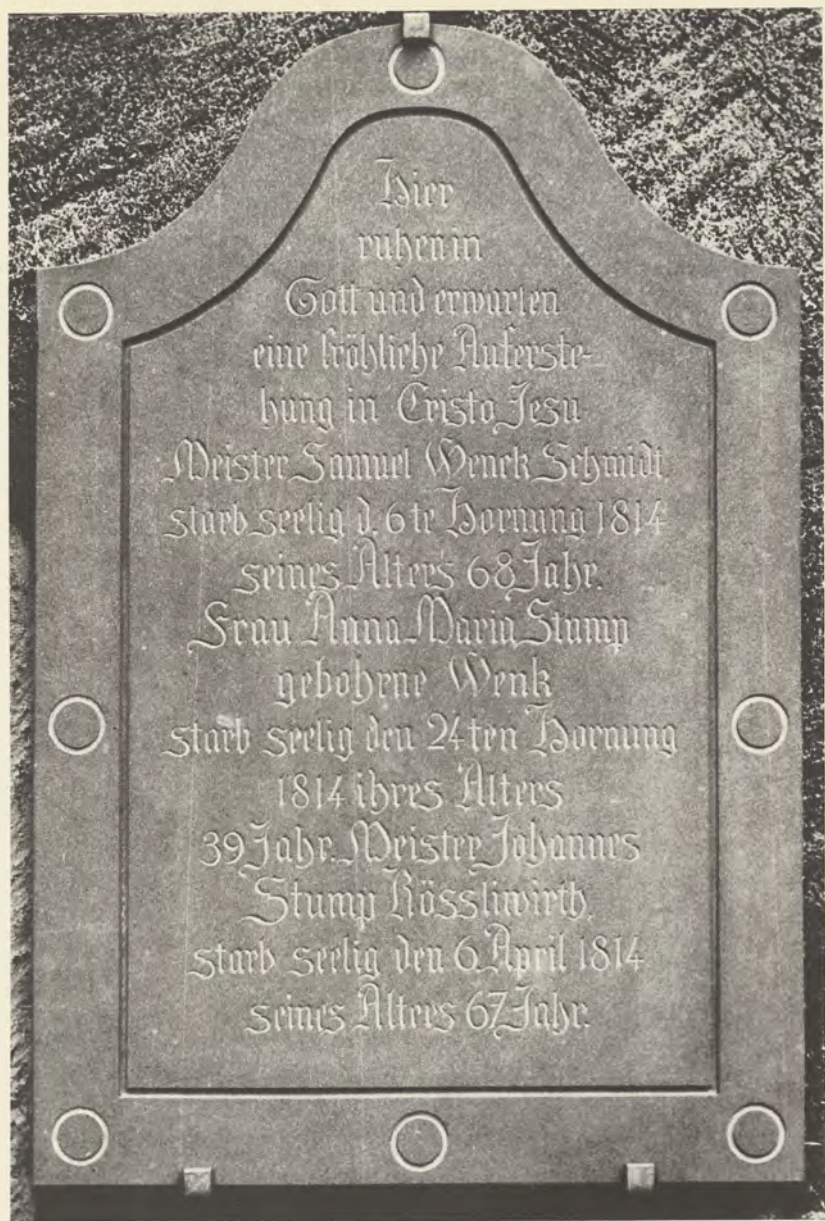 Hier
ruhen in
Gott und erwarten
eine fröhliche Auferste-
hung in Cristo Jesu
Meister Samuel Wenck Schmidt
starb seelig d. 6te Hornung 1814
seines Alters 68 Jahr.
Frau Anna Maria Stump
gebohrne Wenk
starb seelig den 24ten Hornung
1814 ihres Alters
39 Jahr. Meister Johannes
Stump Rössliwirth,
starb seelig den 6. April 1814
seines Alters 67 Jahr.